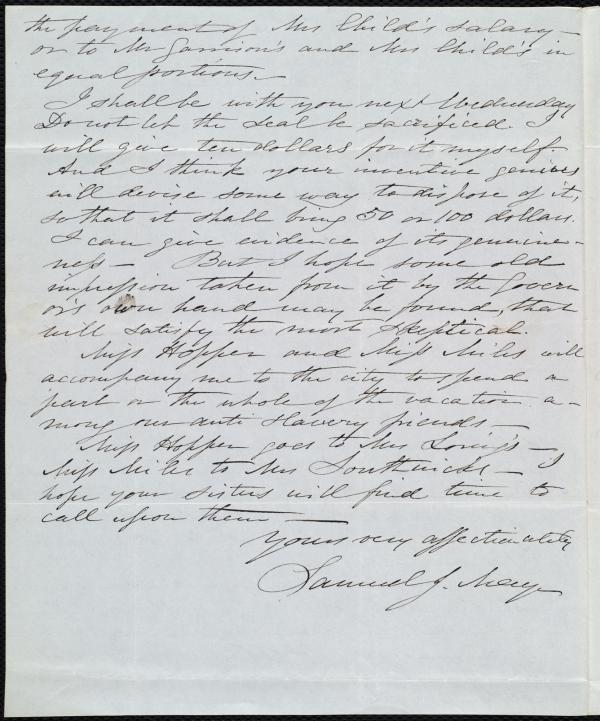 the payment of Mrs Child's salary —
or to Mr Garrison's and Mrs Child's in
equal portions. —
I shall be with you next Wednesday
Do not let the seal be sacrificed. I
will give ten dollars for it myself.
And I think your inventive genius
will devise some way to dispose of it,
so that it shall bring 50 or 100 dollars.
I can give evidence of its genuine-
ness — But I hope some old
impression taken from it by the Govern
or's own hand may be found, that
will satisfy the most skeptical.
Miss Hopper and Miss Miles will
accompany me to the city to spend a
part or the whole of the vacation a-
mong our anti slavery friends —
Miss Hopper goes to Mrs Loring's —
Miss Miles to Mrs Southwick's — I
hope your sisters will find time to
call upon them —
Yours very affectionately
Samuel J. May